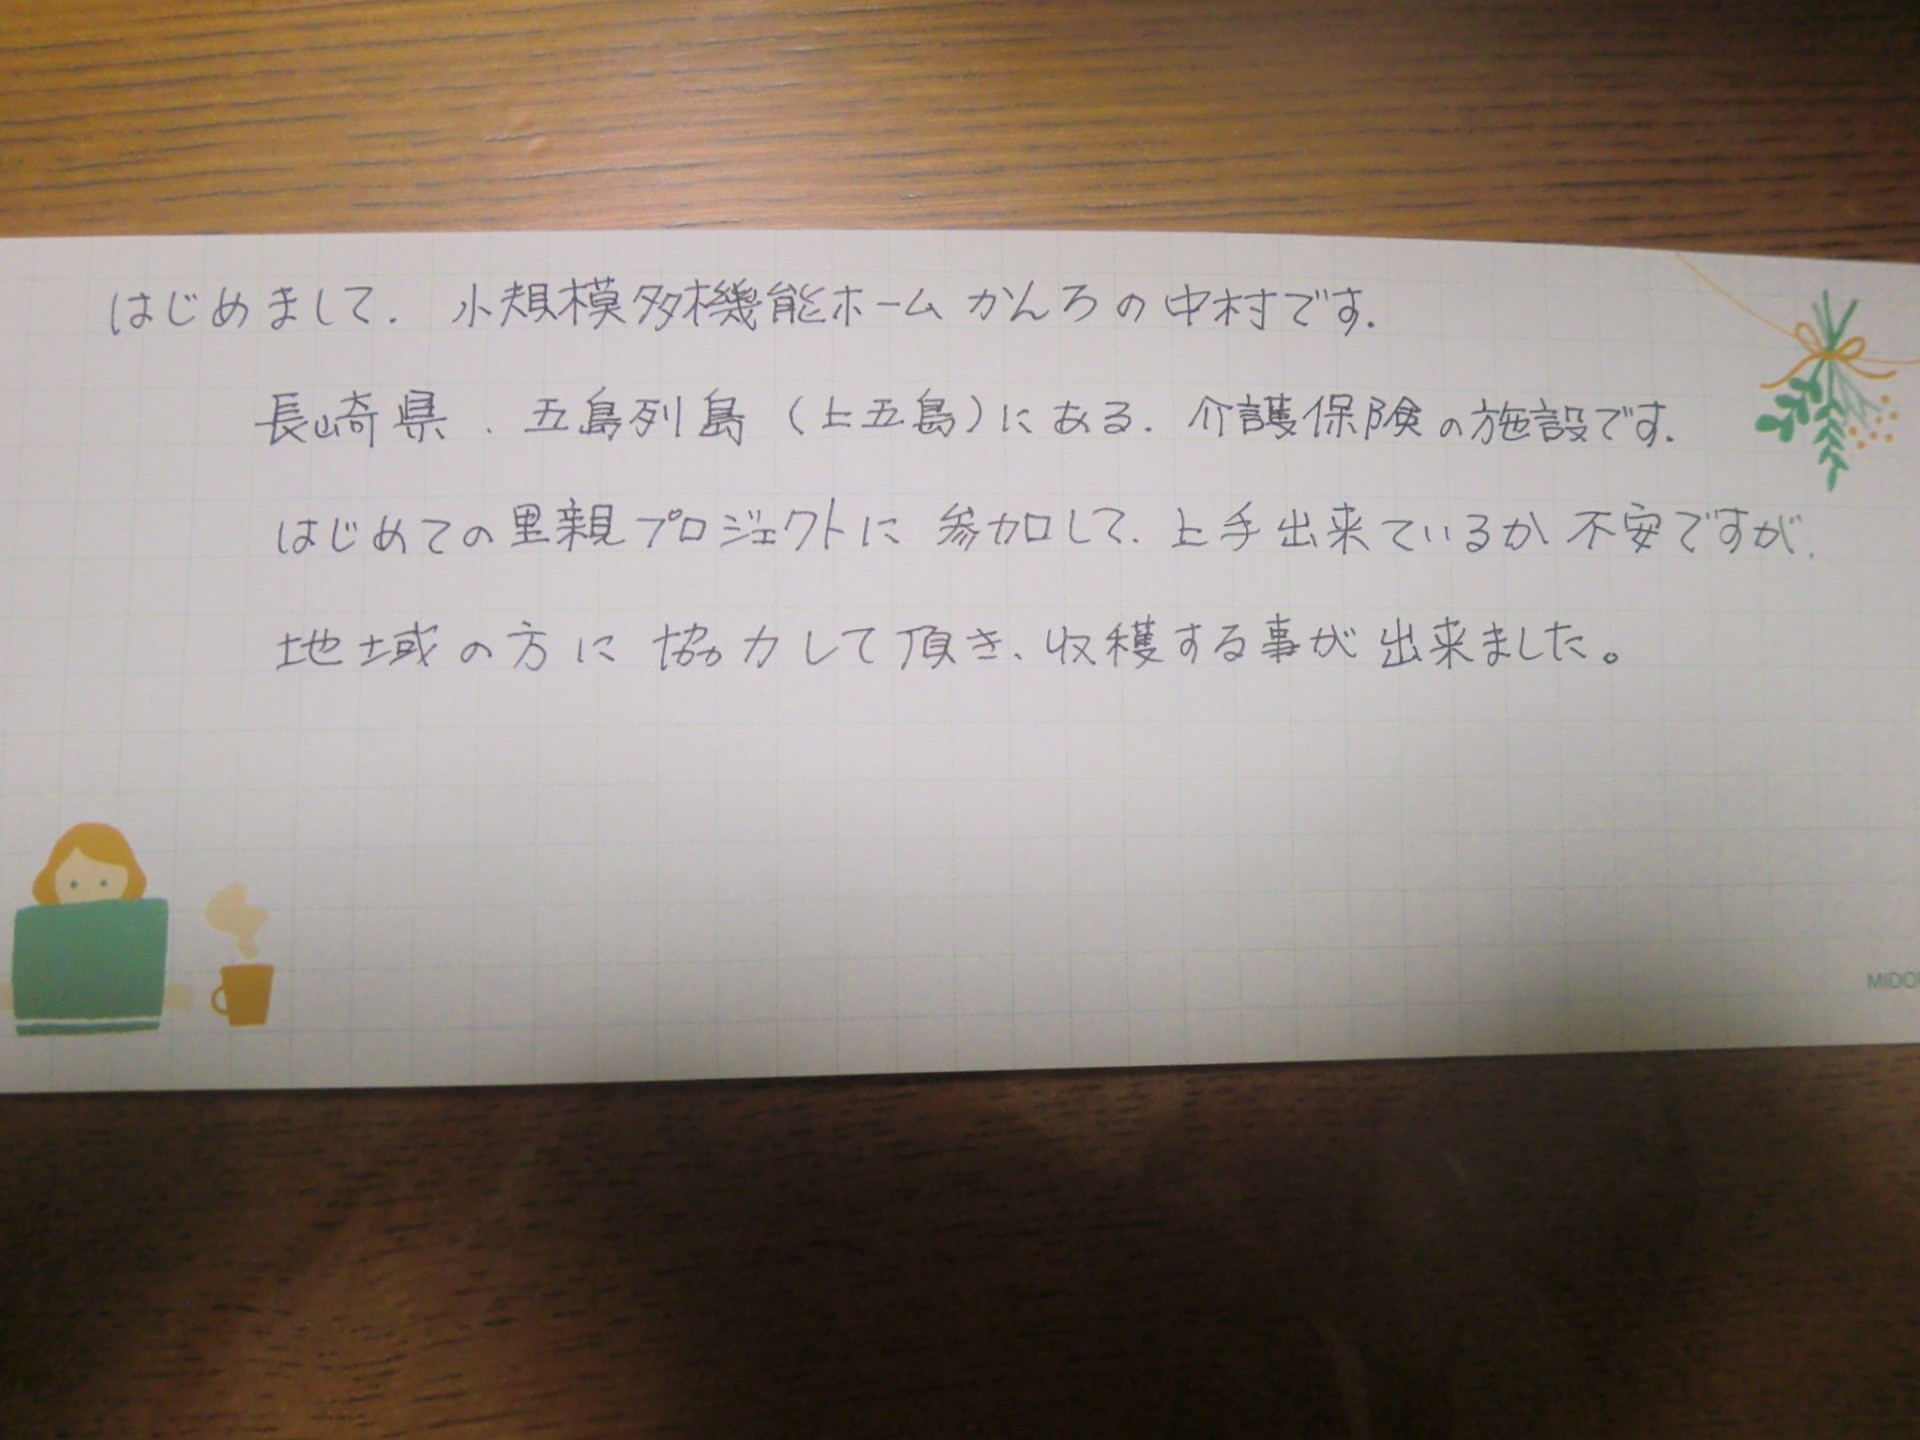 はじめまして. 小規模多機能ホームかんろの中村です.
長崎県、五島列島(上五島)にある. 介護保険の施設です.
はじめての里親プロジェクトに参加して. 上手出来ているか不安ですが.
地域の方に協力して頂き、収穫する事が出来ました。